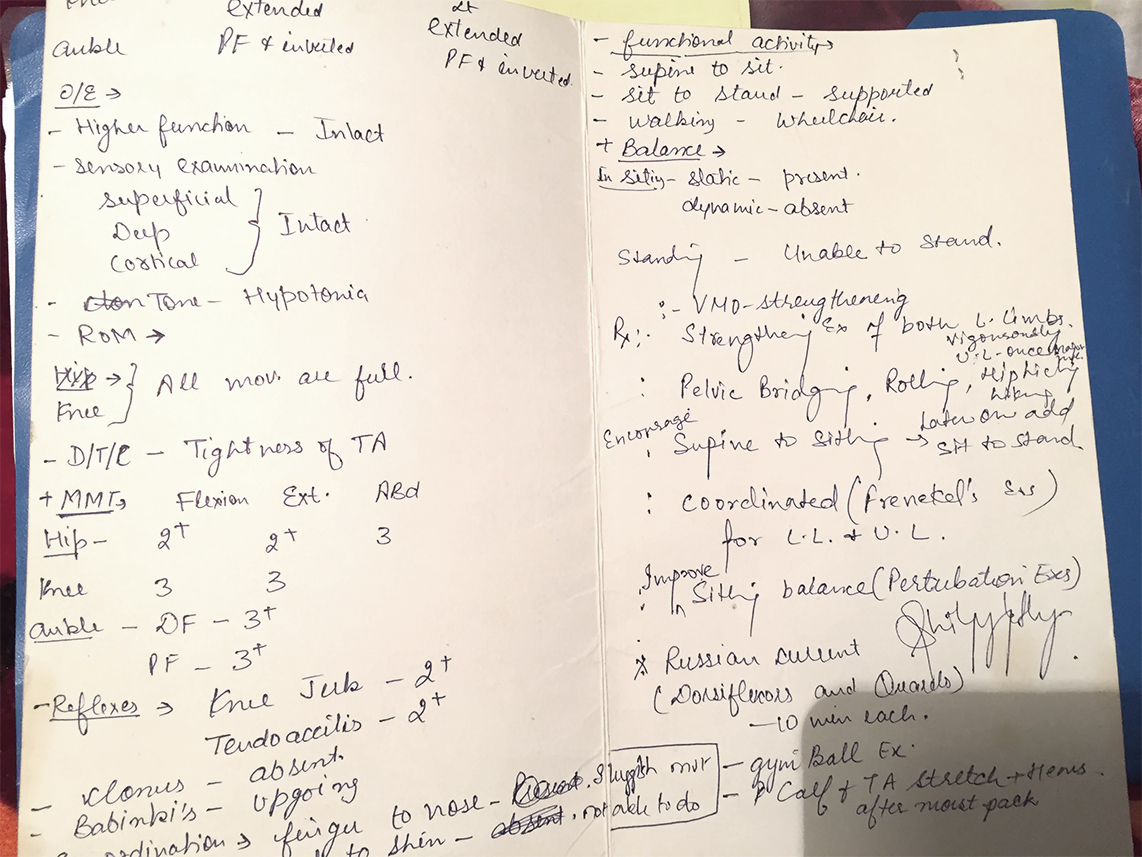 extended
Lt
extended
Ankle PF & inverted
PF & inverted
O/E →
- Higher function - Intact
- Sensory examination
Superficial
Deep } Intact
Cortical
- Tone - Hypotonia
- ROM →
Hip → } All mov. are full.
Knee
- D/T/C - Tightness of TA
+ MMT → Flexion Ext. ABd
Hip - 2+ 2+ 3
Knee 3 3
Ankle - DF - 3+
PF - 3+
- Reflexes → Knee Jerk - 2+
Tendoaccilis - 2+
- Clonus - absent
- Babinki's - Upgoing
ordination → finger to nose - Present, Sluggish mvt
to shin - absent, not able to do
- functional activity →
- Supine to sit.
- sit to stand - supported
- walking - Wheelchair.
+ Balance →
In Sitig - static - present.
dynamic - absent
Standing - Unable to stand.
:- VMO-strengthening
Rx:- Strengtheing Ex of both L. limbs.
Vigorously
U.L-once
: Pelvic Bridging, Rolling, Hip
hiking
Encourage
: Supine to Sitting → Later on add
Sit to Stand
: coordinated (Frenekel's Exs)
for L.L. & U.L.
Improve
: Sitting balance (Pertubation Exes)
* Russian current
(Dorsiflexors and Quards)
- 10 min each.
- gym Ball Ex.
- P Calf & TA stretch + Hems
after moist pack